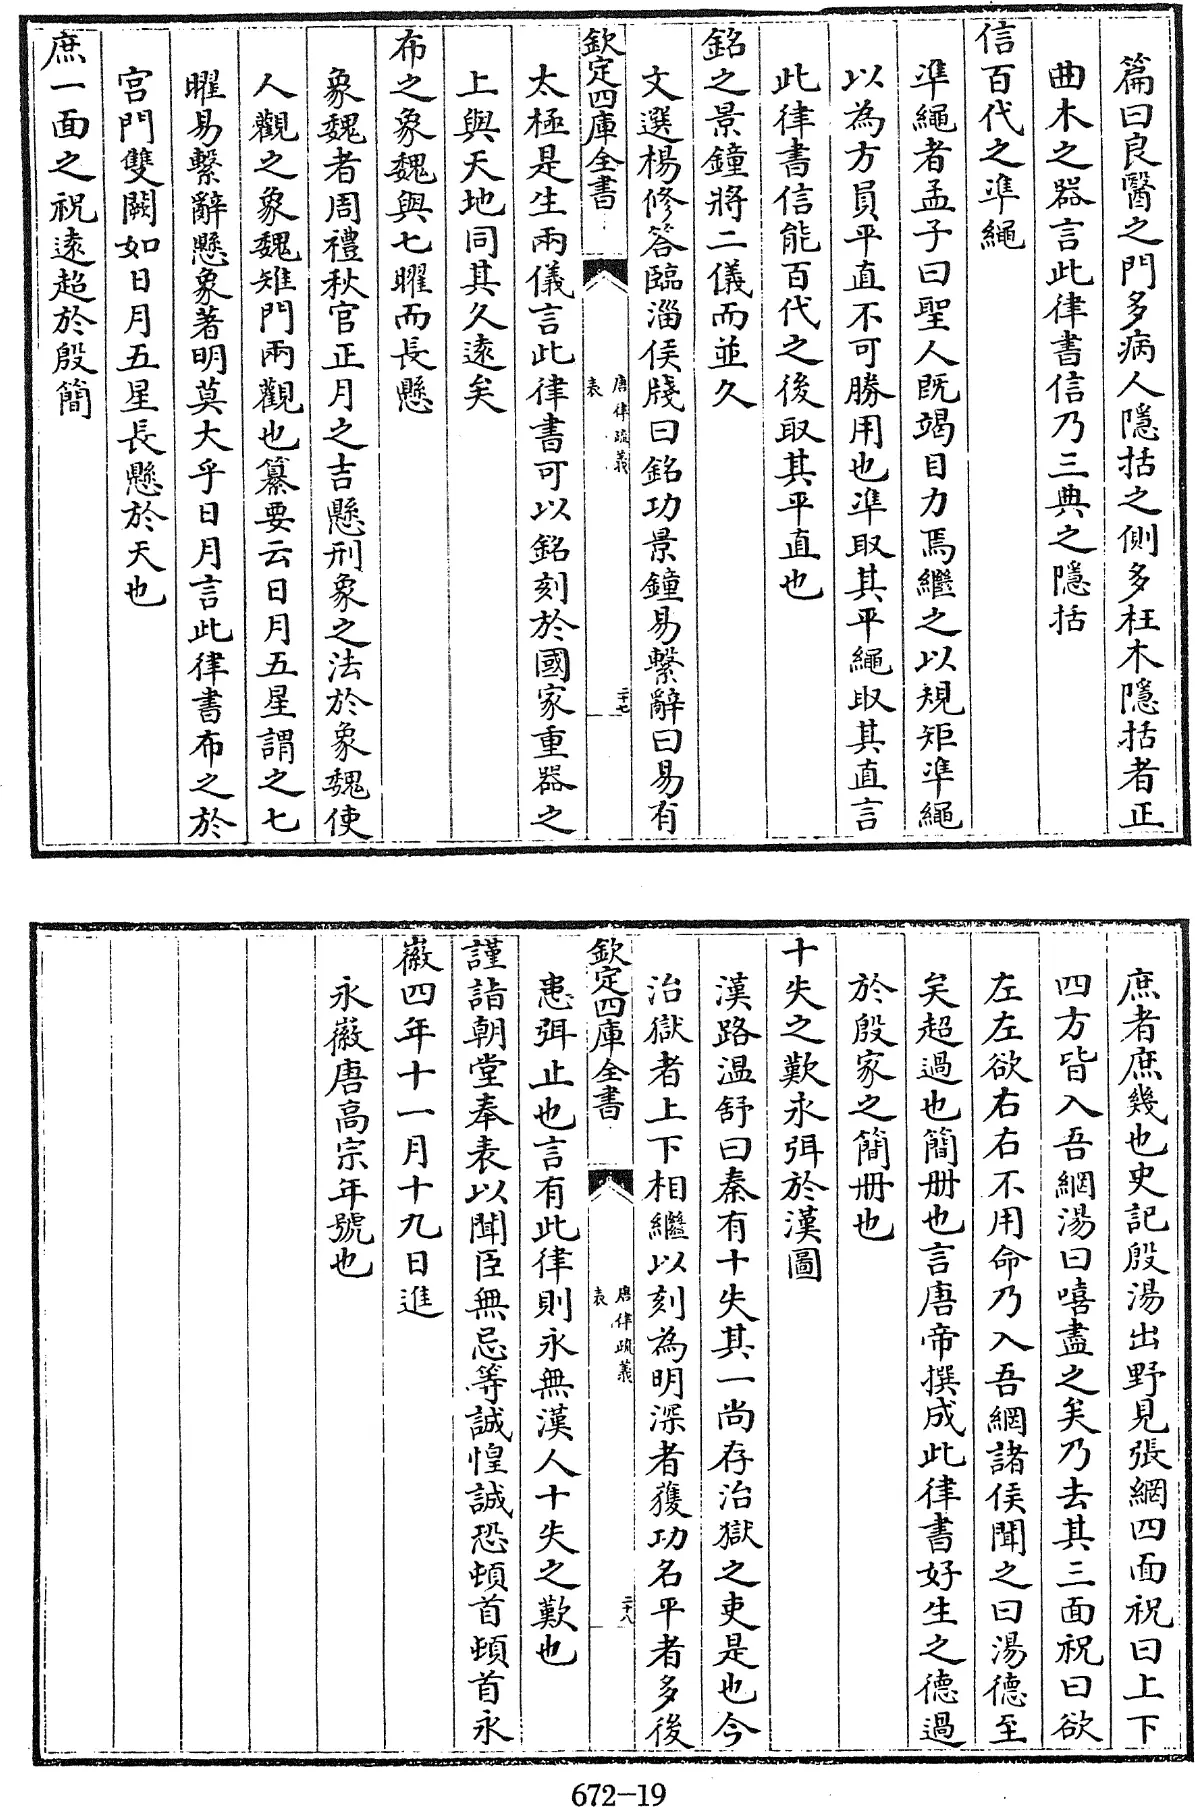 篇曰良醫之門多病人隱括之側多枉木隱括者正
曲木之器言此律書信乃三典之隱括
信百代之準繩
準繩者孟子曰聖人既竭目力焉繼之以規矩準繩
以為方員平直不可勝用也準取其平繩取其直言
此律書信能百代之後取其平直也
銘之景鐘將二儀而並久
文選楊修答臨淄侯牋曰銘功景鐘易繫辭曰易有
欽定四庫全書
唐律疏義
表
二十七
太極是生兩儀言此律書可以銘刻於國家重器之
上與天地同其久遠矣
布之象魏與七曜而長懸
象魏者周禮秋官正月之吉懸刑象之法於象魏使
人觀之象魏雉門兩觀也纂要云日月五星謂之七
曜易繫辭懸象著明莫大乎日月言此律書布之於
宫門雙闕如日月五星長懸於天也
庶一面之祝遠超於殷簡
庶者庶幾也史記殷湯出野見張網四面祝曰上下
四方皆入吾網湯曰嘻盡之矣乃去其三面祝曰欲
左左欲右右不用命乃入吾網諸侯聞之曰湯德至
矣超過也簡册也言唐帝撰成此律書好生之德過
於殷家之簡册也
十失之歎永弭於漢圖
漢路温舒曰秦有十失其一尚存治獄之吏是也今
治獄者上下相繼以刻為明深者獲功名平者多後
欽定四庫全書
唐律疏義
表
二十八
患弭止也言有此律則永無漢人十失之歎也
謹詣朝堂奉表以聞臣無忌等誠惶誠恐頓首頓首永
徽四年十一月十九日進
永徽唐高宗年號也
672-19